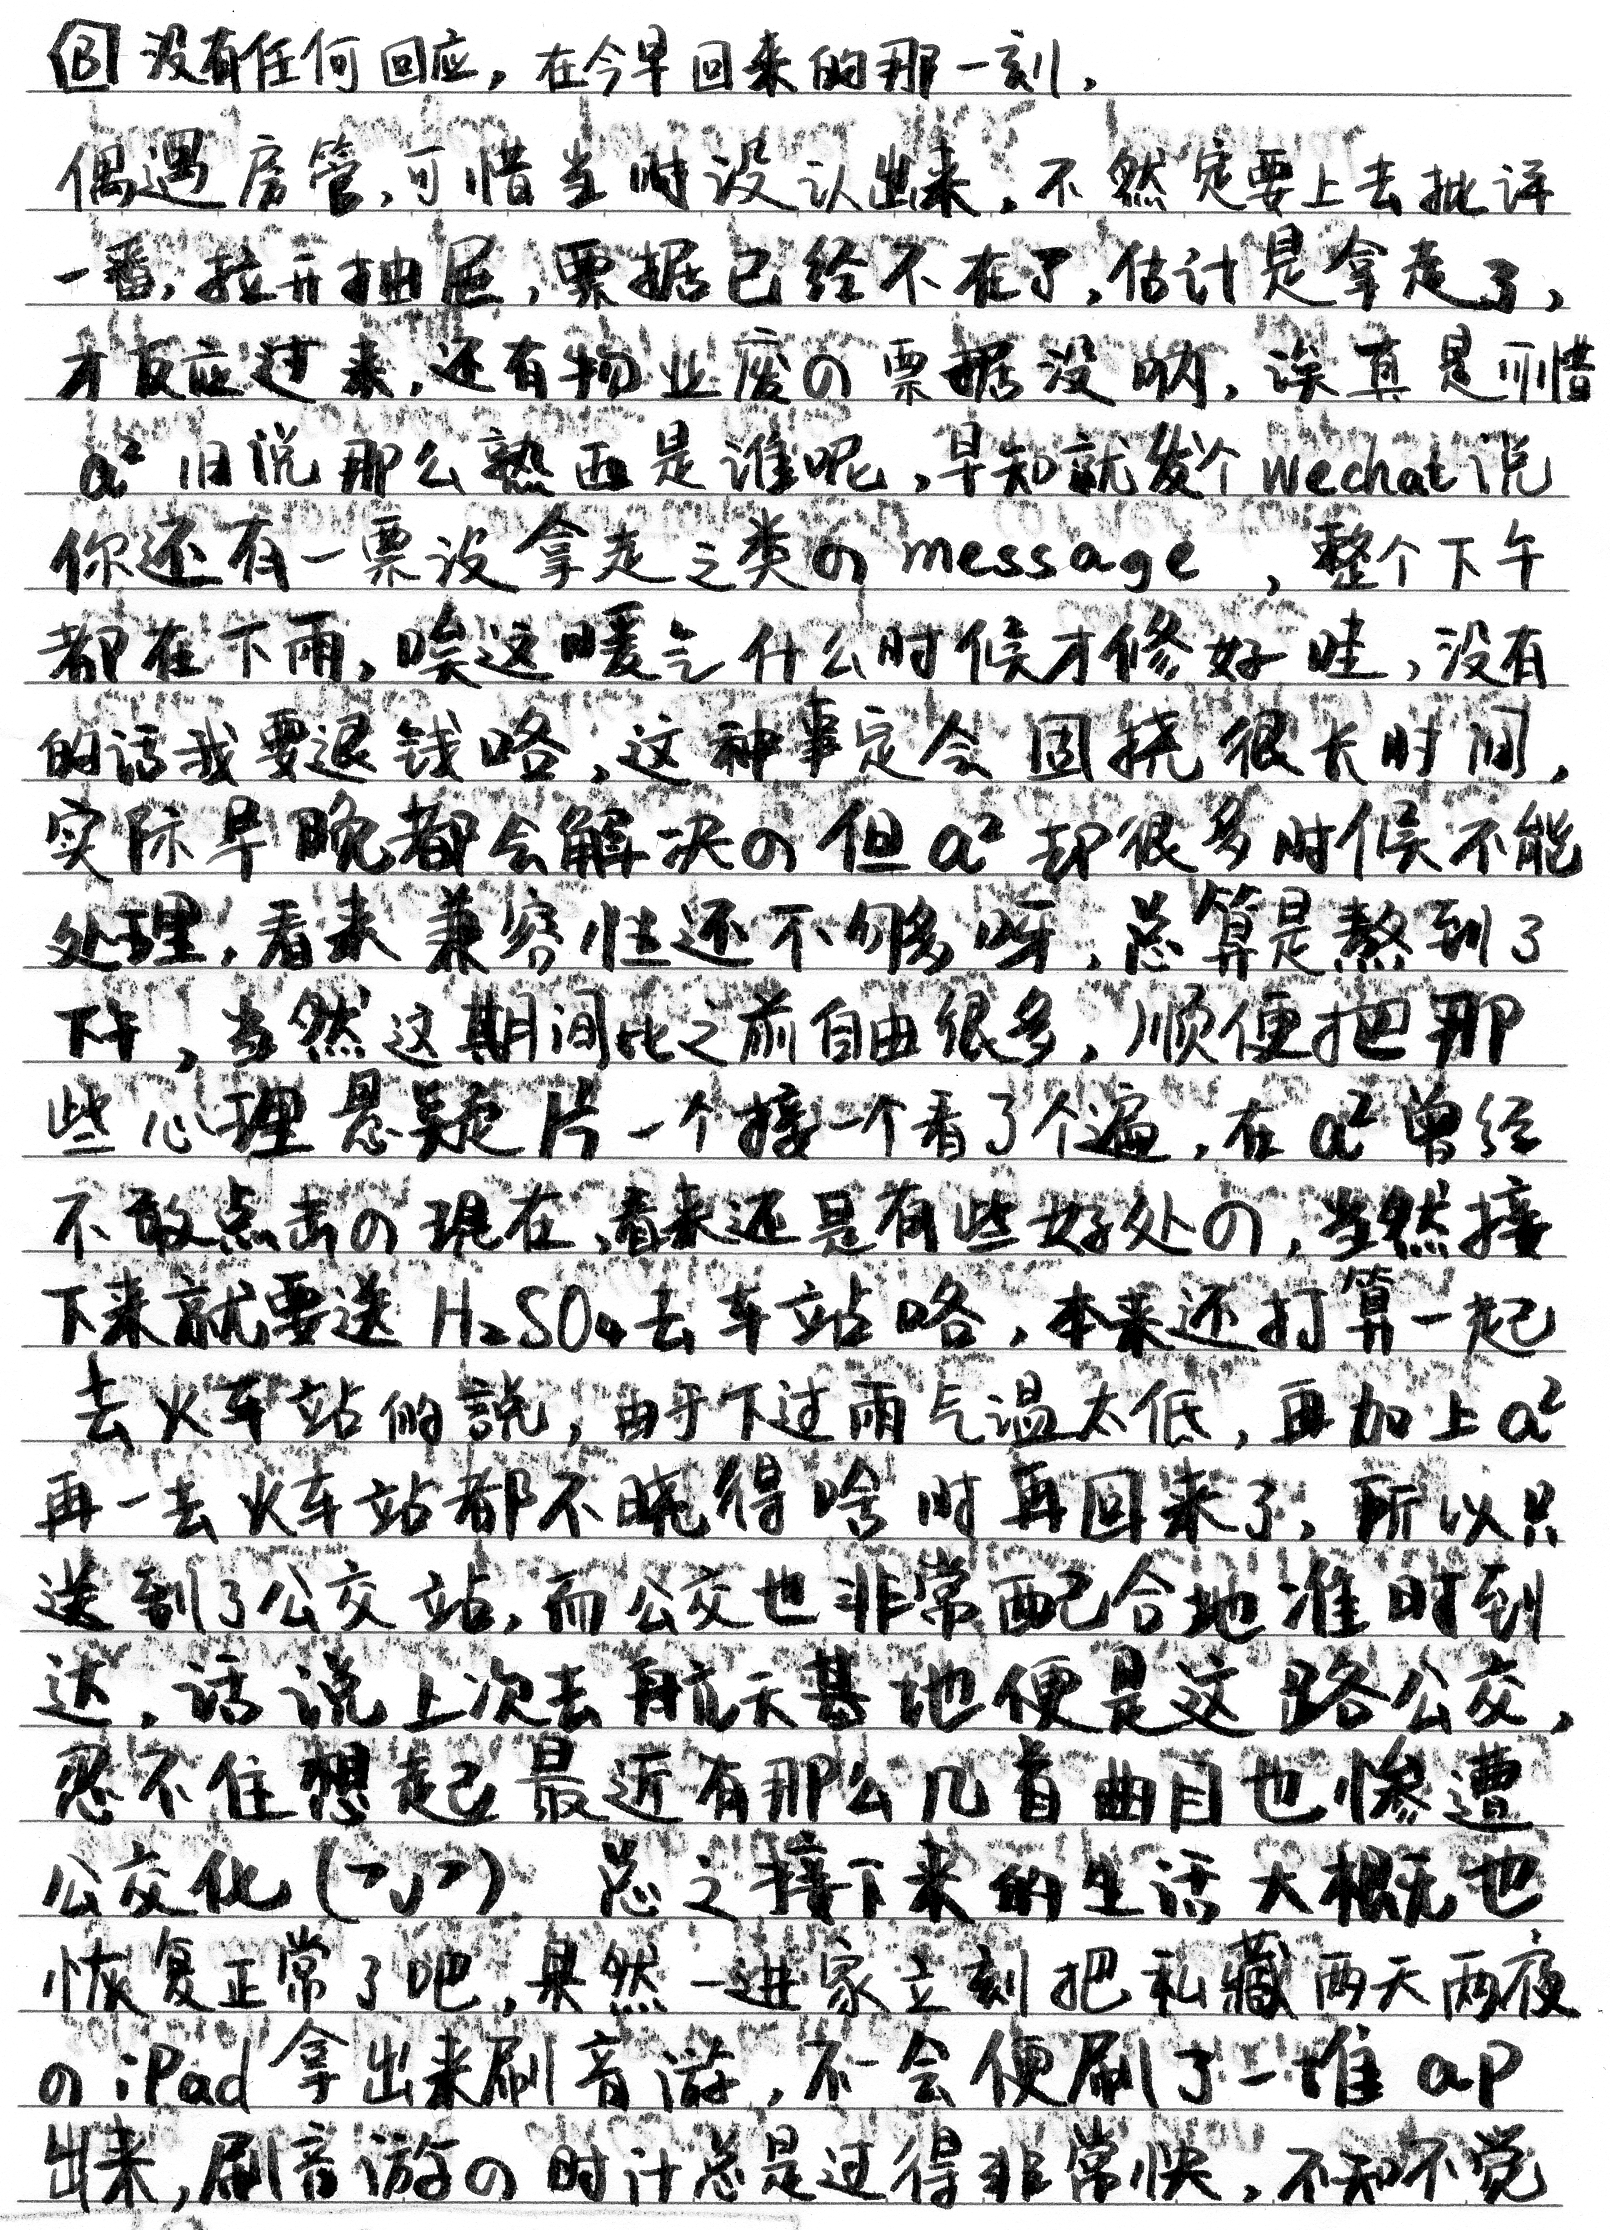 B 没有任何回应，在今早回来的那一刻，
偶遇房管，可惜当时没认出来，不然定要上去批评
一番，拉开抽屉，票据已经不在了，估计是拿走了，
才反应过来，还有物业废の票据没呐，诶真是可惜
a² 旧说那么熟西是谁呢，早知就发个wechat说
你还有一票没拿走之类の message，整个下午
都在下雨，唉这暖气什么时候才修好哇，没有
的话我要退钱咯，这种事定会困挠很长时间，
实际早晚都会解决の但a²却很多时候不能
处理，看来兼容性还不够呀，总算是熬到了
下午，当然这期间比之前自由很多，顺便把那
些心理悬疑片一个接一个看了个遍，在a²曾经
不敢点击の现在，看来还是有些好处の，当然接
下来就要送H₂SO₄去车站咯，本来还打算一起
去火车站的説，由于下过雨气温太低，再加上a²
再一去火车站都不晓得啥时再回来了，所以只
送到了公交站，而公交也非常配合地准时到
达，话说上次去航天基地便是这路公交，
忍不住想起最近有那么几首曲目也惨遭
公交化 总之接下来的生活大概也
恢复正常了吧，果然一进家立刻把私藏两天两夜
の iPad拿出来刷音游，不一会便刷了一堆ap
出来，刷音游の时计总是过得非常快，不知不觉